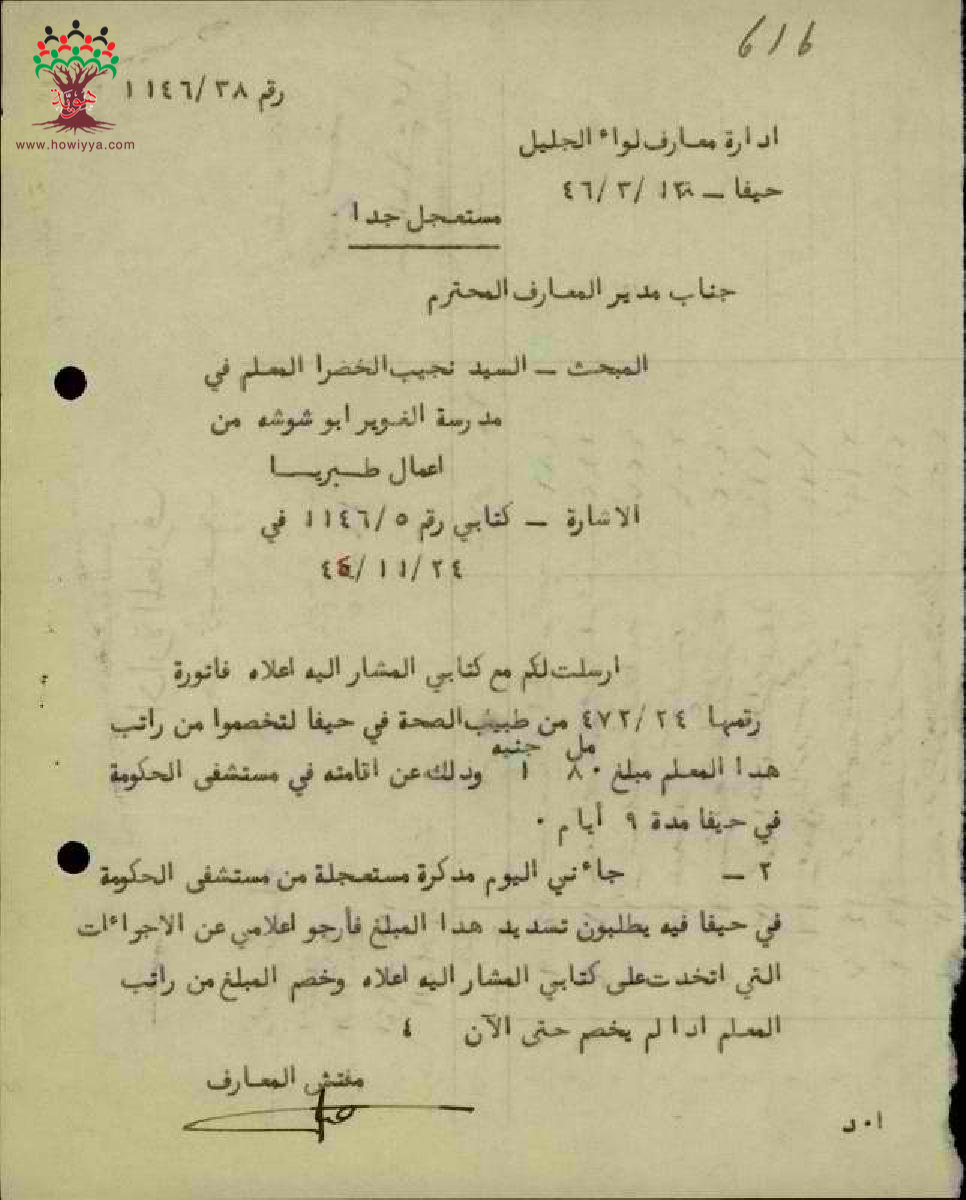 616
هوية
www.howiyya.com
رقم ١١٤٦/٣٨
ادارة معارف لواء الجليل
حيفا – /٣/٤٦
مستعجل جدا ٠
جناب مدير المعارف المحترم
المبحث – السيد نجيب الخضرا المعلم في
مدرسة الغوير ابو شوشه من
اعمال طبريا
الاشارة – كتابي رقم ١١٤٦/٥ في
٢٤/١١/
ارسلت لكم مع كتابي المشار اليه اعلاه فاتورة
رقمها ٤٧٢/٢٤ من طبيب الصحة في حيفا لتخصموا من راتب
مل جنيه
هدا المعلم مبلغ ٨٠ ١ ودلك عن اقامته في مستشفى الحكومة
في حيفا مدة ٩ أيام ٠
٢ – جاءني اليوم مدكرة مستعجلة من مستشفى الحكومة
في حيفا فيه يطلبون تسديد هدا المبلغ فأرجو اعلامي عن الاجراءات
التي اتخدت على كتابي المشار اليه اعلاه وخصم المبلغ من راتب
المعلم ادا لم يخصم حتى الآن ٤
مفتش المعارف
ا٠د